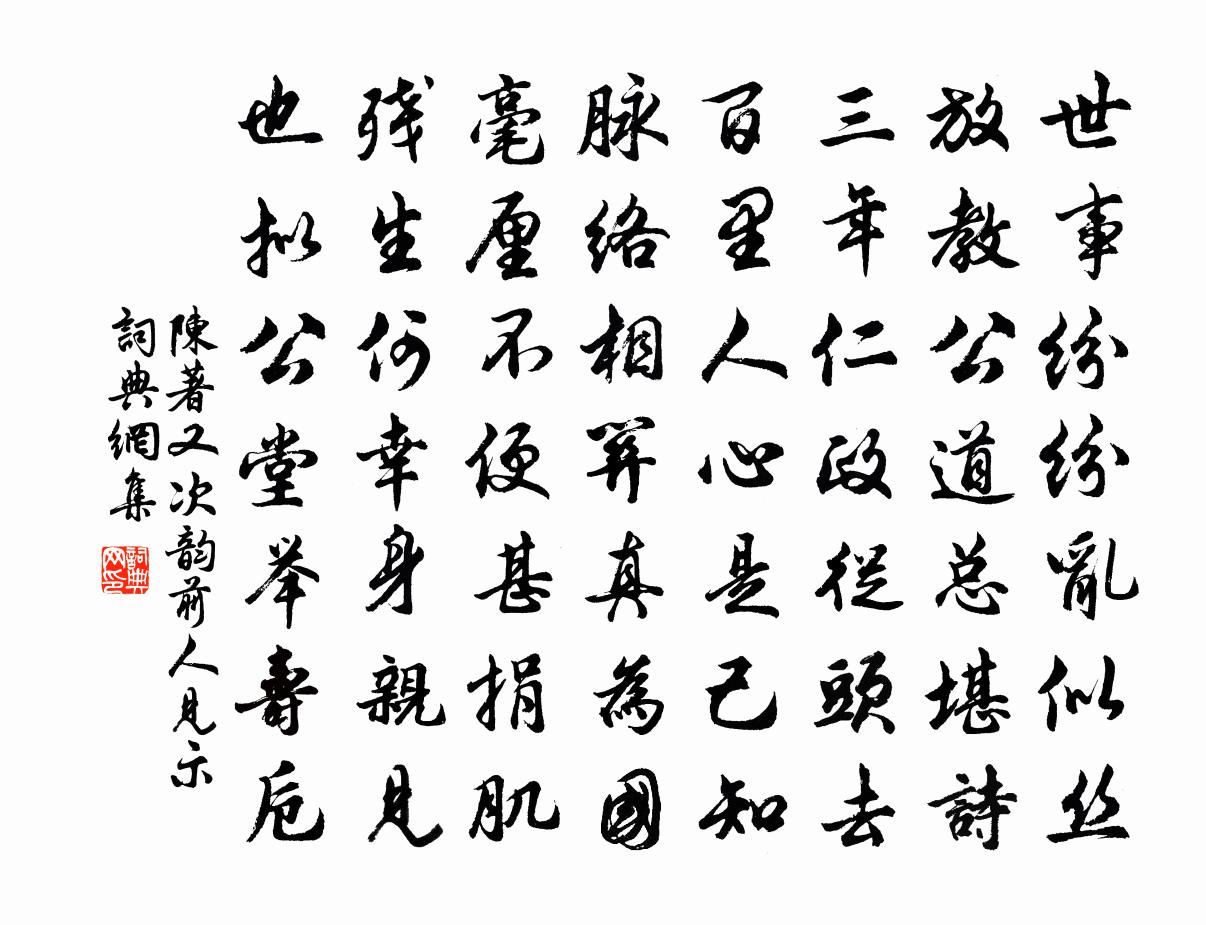 世事紛紛亂似丝
放教公道总堪詩
三年仁政從頭去
百里人心是己知
脉络相关真為國
毫厘不便甚捐肌
残生何幸身親見
也拟公堂举壽卮
陳著又次韵前人見示
詞典網集
詞典网印